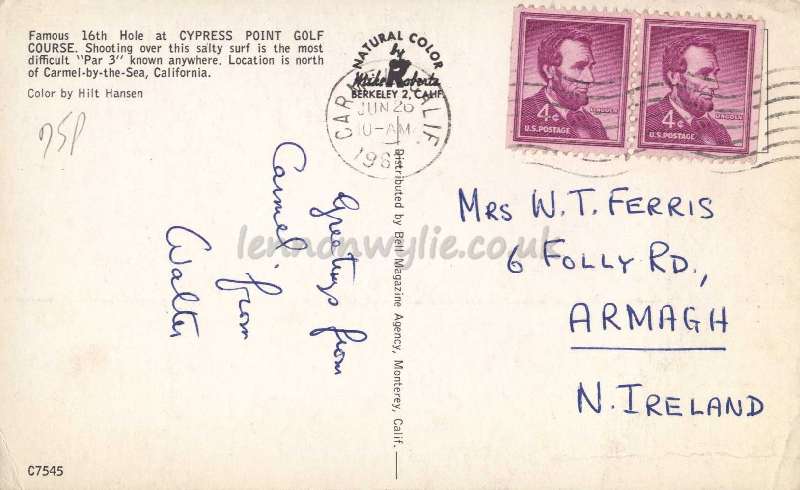 Famous 16th Hole at CYPRESS POINT GOLF
COURSE. Shooting over this salty surf is the most
difficult "Par 3" known anywhere. Location is north
of Carmel-by-the-Sea, California.
Color by Hilt Hansen
75P
NATURAL COLOR
by
Mike Roberts
BERKELEY 2, CALIF.
CALIF
JUN 26
10-AM
196
4¢
LINCOLN
U.S. POSTAGE
4¢
LINCOLN
U.S. POSTAGE
Greetings from
Carmel. from
Walter
Distributed by Bell Magazine Agency, Monterey, Calif.
lennonwylie.co.uk
MRS W. T. FERRIS
6 FOLLY RD.,
ARMAGH
N. IRELAND
C7545